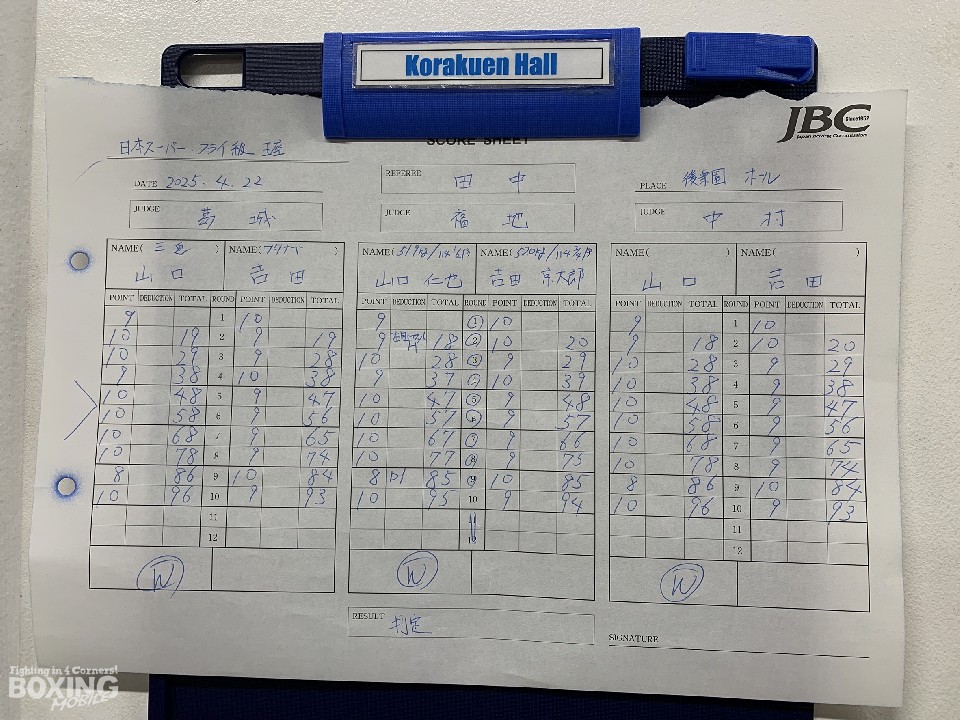 Korakuen Hall
JBC Since1952
Japan Boxing Commission
SCORE SHEET
日本スーパー・フライ級 王座
DATE 2025.4.22
REFEREE 田中
PLACE 後楽園ホール
JUDGE 葛城
JUDGE 福地
JUDGE 中村
NAME( ) NAME( )
山口 吉田
POINT DEDUCTION TOTAL ROUND POINT DEDUCTION TOTAL
9 1 10
10 19 2 9 19
10 29 3 9 28
9 38 4 10 38
10 48 5 9 47
10 58 6 9 56
10 68 7 9 65
10 78 8 9 74
8 86 9 10 84
10 96 10 9 93
11
12
W
NAME( ) NAME( )
山口 仁也 吉田 京太郎
POINT DEDUCTION TOTAL ROUND POINT DEDUCTION TOTAL
9 1 10
9 18 2 10 20
10 28 3 9 29
9 37 4 10 39
10 47 5 9 48
10 57 6 9 57
10 67 7 9 66
10 77 8 9 75
8 85 9 10 85
10 95 10 9 94
W
NAME( ) NAME( )
山口 吉田
POINT DEDUCTION TOTAL ROUND POINT DEDUCTION TOTAL
9 1 10
9 18 2 10 20
10 28 3 9 29
10 38 4 9 38
10 48 5 9 47
10 58 6 9 56
10 68 7 9 65
10 78 8 9 74
8 86 9 10 84
10 96 10 9 93
11
12
W
RESULT 判定
SIGNATURE
Fighting in 4 Corners!
BOXING
MOBILE